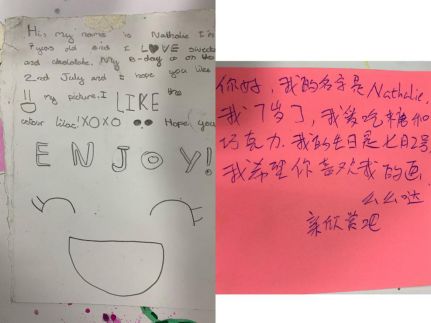 Hi, my name is Nathalie I'm
7 years old and I LOVE sweets
and chocolate. My B-day is on the
2nd July and I hope you like
my picture. I LIKE the
colour lilac! XOXO Hope you
ENJOY!
你好，我的名字是Nathalie，
我7岁了，我爱吃糖和
巧克力。我的生日是七月2号
我希望你喜欢我的画
么么哒
亲欣赏吧